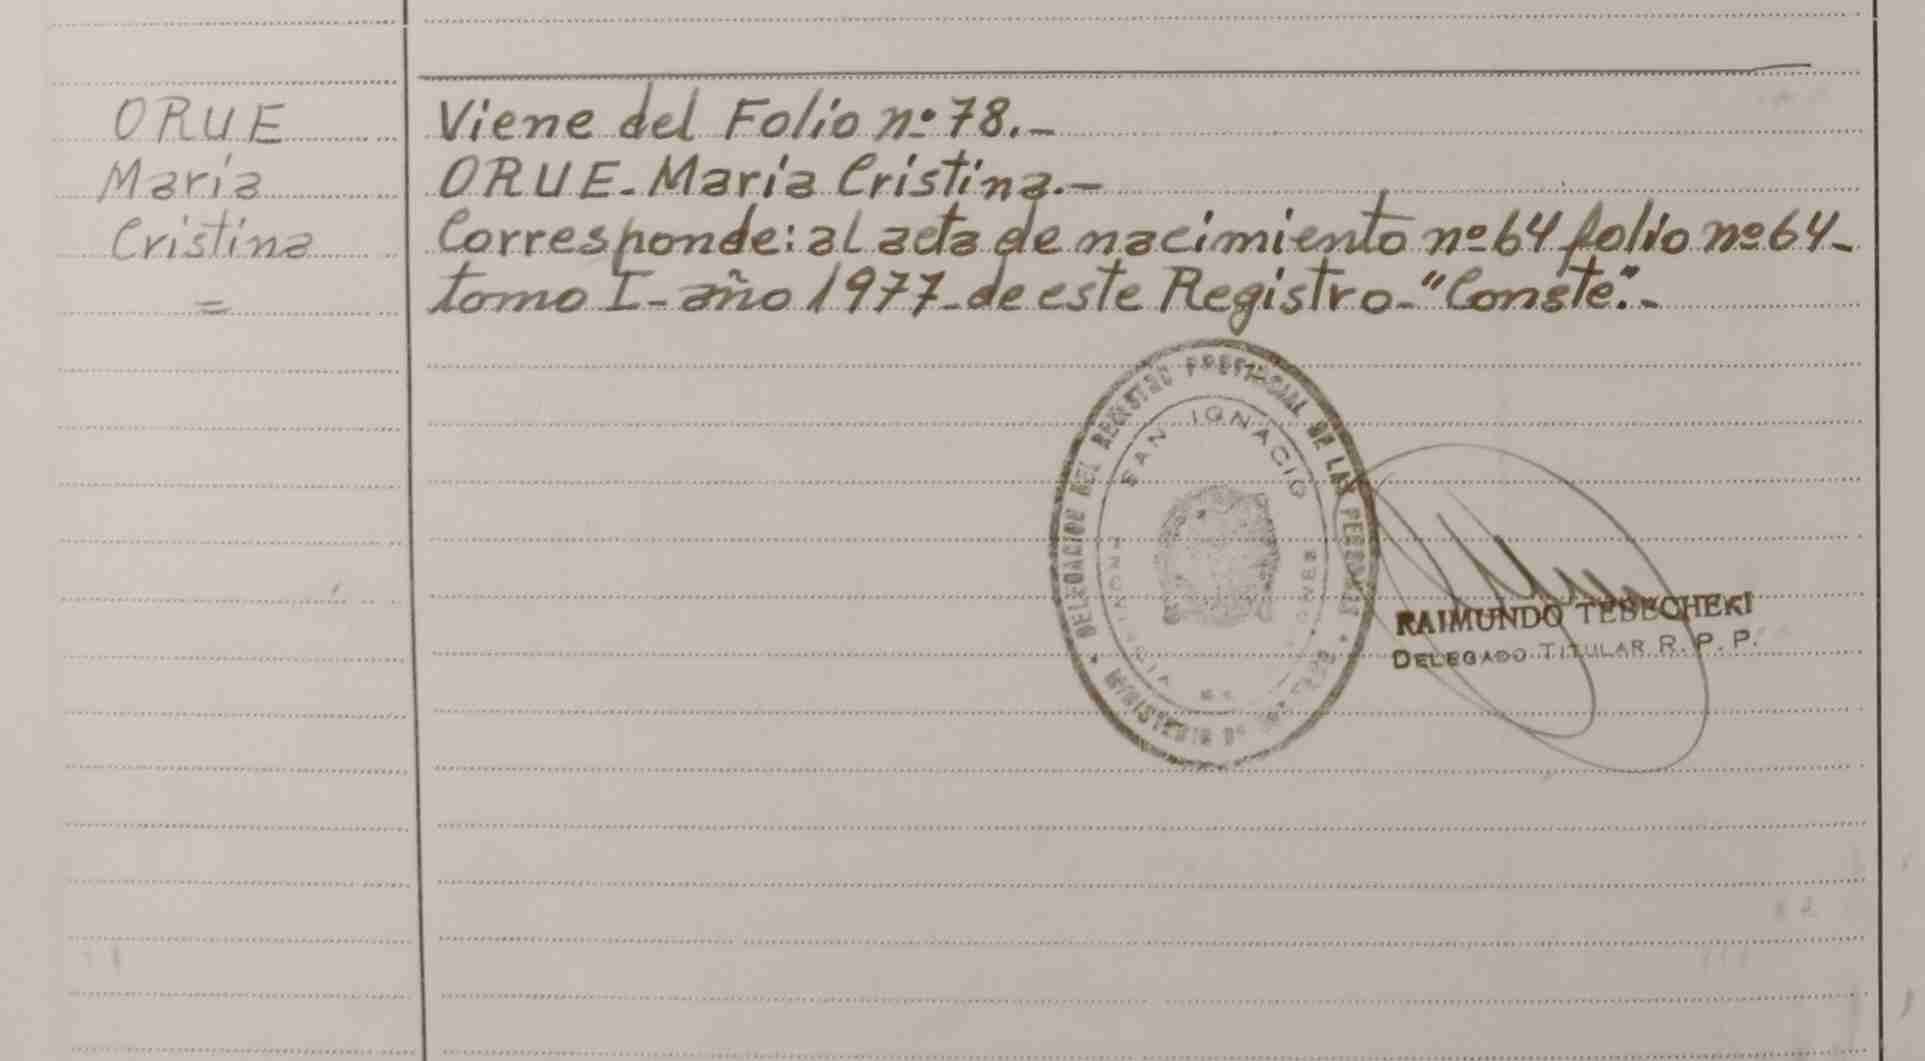 ORUE
María
Cristina
=
Viene del Folio nº 78.-
ORUE - María Cristina.-
Corresponde: al acta de nacimiento nº 64 folio nº 64-
tomo I - año 1977 - de este Registro - "Conste".-
DELEGACION DEL REGISTRO PROVINCIAL DE LAS PERSONAS
SAN IGNACIO
MISIONES
MINISTERIO DE
RAIMUNDO
DELEGADO TITULAR R. P. P.